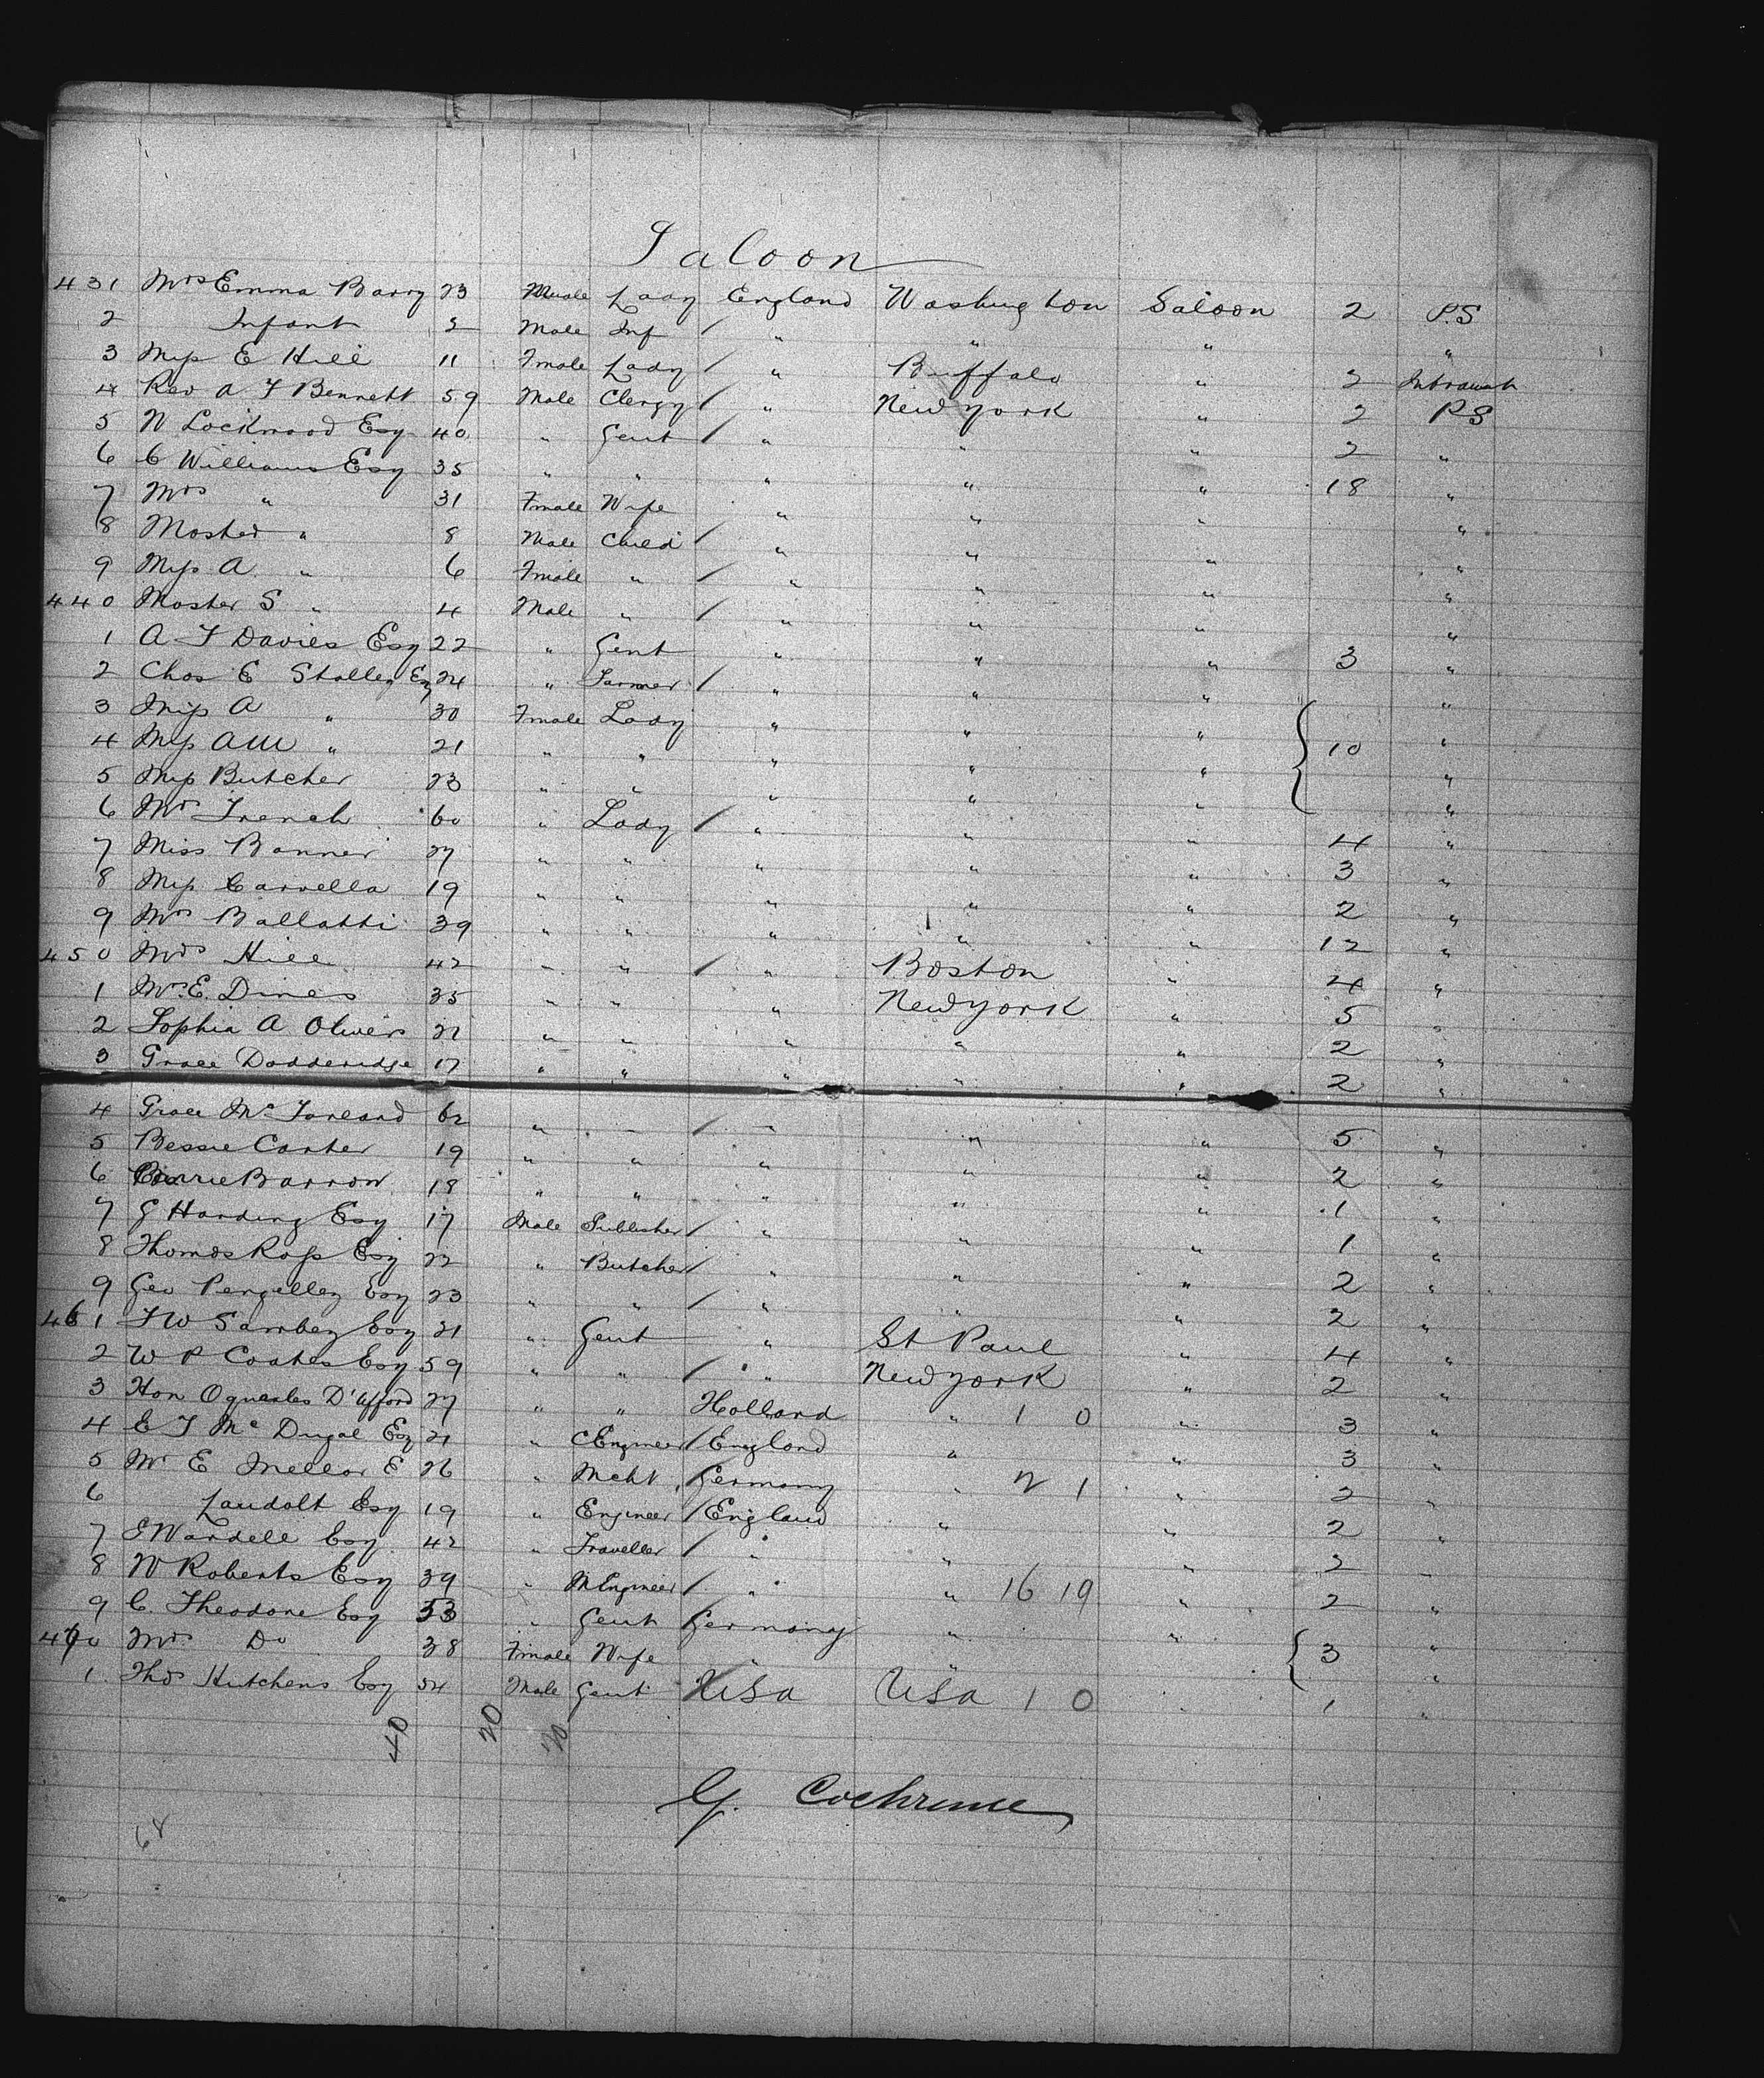 Saloon
431 Mrs Emma Barry 23 Lady England Washington Saloon 2 P.S
2 Infant Male Inf / " " " "
3 Miss E Hill 11 Fmale Lady / " Buffalo " 2 Intransit
4 Rev A F Bennett 59 Male Clergy / " New York " 2 PS
5 W Lockwood Esq 40 " Gent / " " " 2 "
6 C Williams Esq 35 " " " " " 18 "
7 Mrs " 31 Fmale Wife " " " "
8 Master " 8 Male Child / " " " "
9 Miss A " 6 Fmale " / " " " "
440 Master S " 4 Male " / " " " "
1 A J Davies Esq 22 " Gent " " " 3 "
2 Chas E Stalley Esq 24 " Farmer / " " " "
3 Miss A " 30 Fmale Lady " " " 10 "
4 Miss AM " 21 " " " " " "
5 Miss Butcher 23 " " " " " "
6 Mrs French 60 " Lady / " " " 4 "
7 Miss Banner 27 " " " " " 3 "
8 Miss Carvella 19 " " " " " 2 "
9 Mrs Ballatti 39 " " " " " 12 "
450 Mrs Hill 42 " " / " Boston " 4 "
1 Mrs E. Dines 35 " " " New York " 5 "
2 Sophia A Olivers 21 " " " " " 2 "
3 Grace Dodderidge 17 " " " " " 2 "
4 Grace Mc Farland 62 " " / " " " 5 "
5 Bessie Carter 19 " " " " " 2 "
6 Carrie Barrow 18 " " " " " 1 "
7 G Harding Esq 17 Male Publisher / " " " 1 "
8 Thomas Ross Esq 22 " Butcher / " " " 2 "
9 Geo Pengelley Esq 23 " " / " " " 2 "
461 F W Sambey Esq 21 " Gent " St Paul " 4 "
2 W P Coates Esq 59 " " / " New York " 2 "
3 Hon Oquarles D'Ufford 27 " " Holland " 1 0 " 3 "
4 E J Mc Dugal Esq 21 " C Engineer / England " " 3 "
5 Mr E Mellor E 26 " Mcht Germany " 2 1 " 2 "
6 Landolt Esq 19 " Engineer / England " " 2 "
7 Wardell Esq 42 " Traveller / " " " 2 "
8 W Roberts Esq 39 " M Engineer / " " 16 19 " 2 "
9 C. Theodore Esq 53 " Gent Germany " " 3 "
470 Mrs Do 38 Fmale Wife " " "
1 Thos Hutchens Esq 54 Male Gent USA USA 1 0 " 1 "
40 20 20
G. Cochrane
68